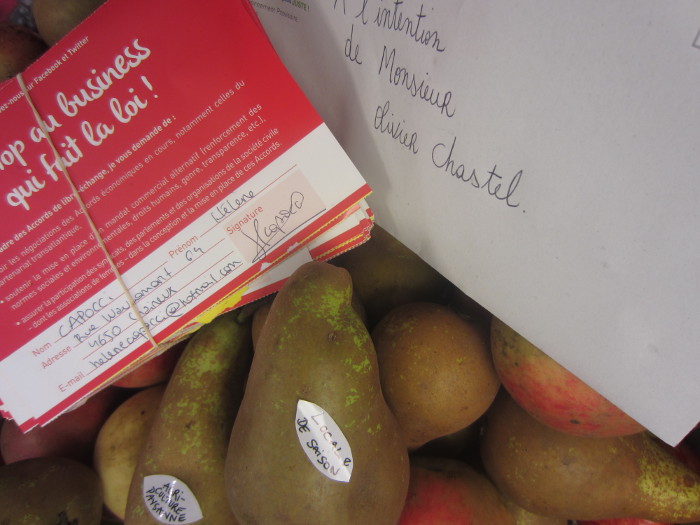 sur Facebook et Twitter
op au business
qui fait la loi !
Accords de libre-échange, je vous demande de :
les négociations des Accords économiques en cours, notamment celles du
partenariat transatlantique,
soutenir la mise en place d'un mandat commercial alternatif (renforcement des
normes sociales et environnementales, droits humains, genre, transparence, etc.),
• assurer la participation des syndicats, des parlements et des organisations de la société civile
- dont les associations de femmes - dans la conception et la mise en place de ces Accords.
Nom CAPOCCI Prénom Hélène
Adresse Rue Wauaumont 64
4650 Chaineux
E-mail
Signature
À l'intention
de Monsieur
Olivier Chastel.
LOCAL &
DE SAISON
AGRI-
CULTURE
PAYSANNE